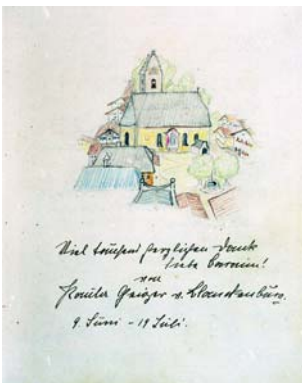 Viel tausend herzlichen Dank
liebe Baronin!
von
Paula Geiger v. Blanckenburg.
9. Juni - 19 Juli.